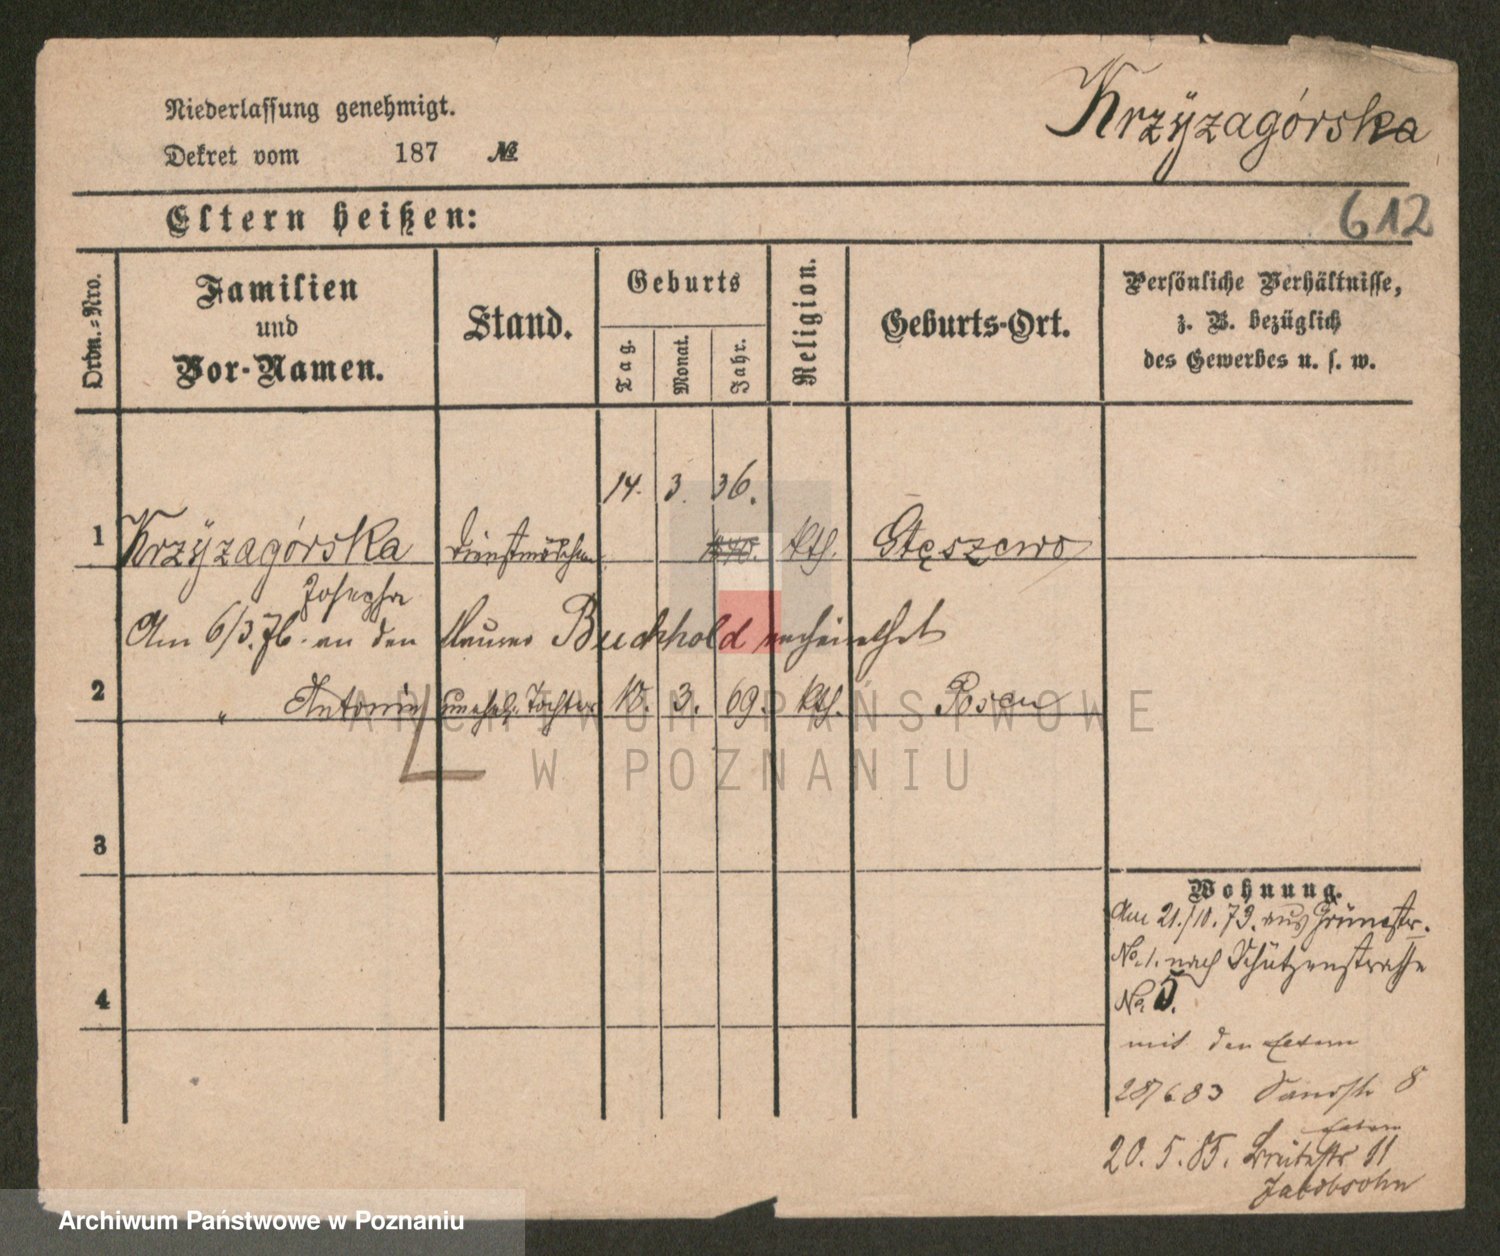 Niederlassung genehmigt.
Dekret vom 187 №
Krzÿzagórska
612
Eltern heißen:
Ordn.-Nro.
Familien
und
Vor-Namen.
Stand.
Geburts
Tag.
Monat.
Jahr.
Religion.
Geburts-Ort.
Persönliche Verhältnisse,
z. B. bezüglich
des Gewerbes u. s. w.
14. 3. 36.
1 Krzÿzagórska Dienstmädchen 1840. kth. Stęszewo
Josepha
Am 6/3. 76. an den Maurer Buchhold verheirathet
2 " Antonie unehel. Tochter 18. 3. 69. kth. Posen
ARCHIWUM PAŃSTWOWE
W POZNANIU
3
4
Wohnung.
Am 21./10. 79. aus Grünestr.
No. 1. nach Schützenstrasse
No. 5.
mit den Eltern
28/6 83 Sandstr 8
Eltern
20. 5. 85. Breitestr 11
Jacobsohn
Archiwum Państwowe w Poznaniu